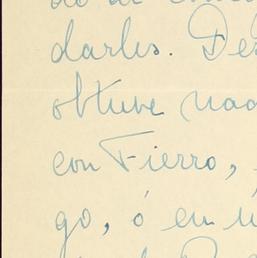 darles. Des
obtuve nad
con Fierro,
go, ó en u